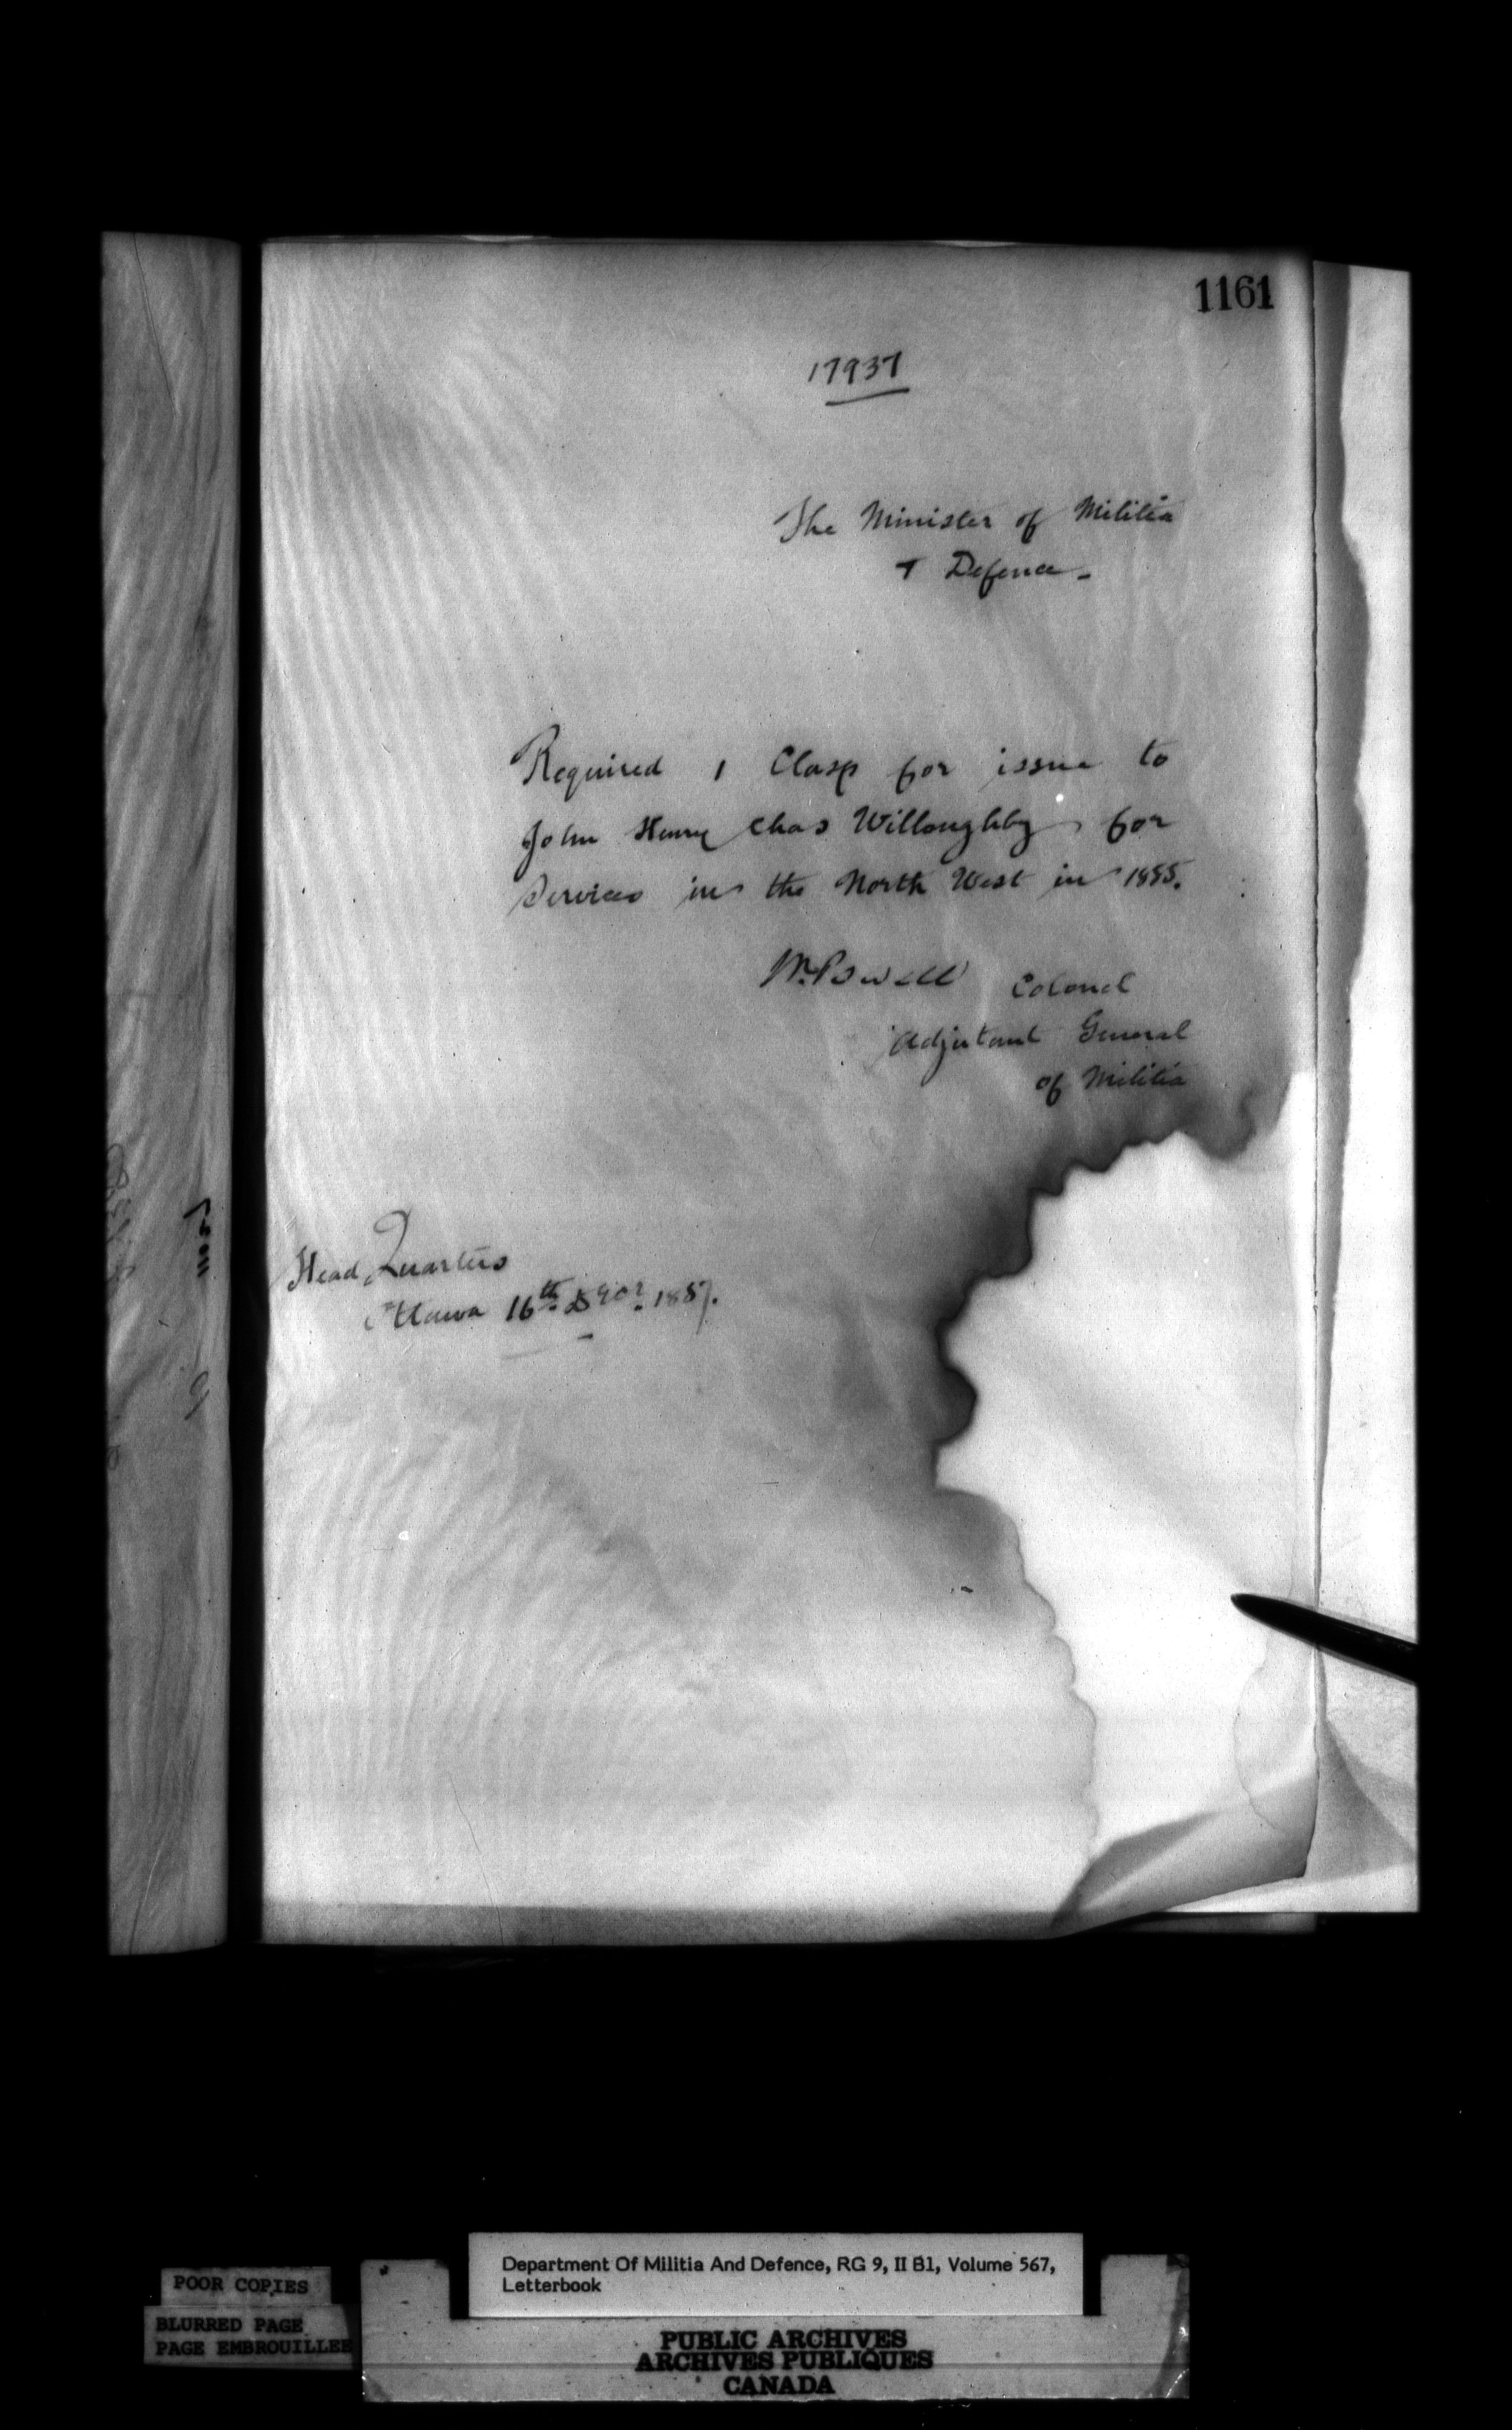 1161
17937
The Minister of Militia
& Defence -
Required 1 Clasp for issue to
John Henry Chas Willoughby for
Services in the North West in 1885.
W. Powell Colonel
Adjutant General
of Militia
Head Quarters
Ottawa 16th Decr. 1887.
Department Of Militia And Defence, RG 9, II B1, Volume 567,
Letterbook
POOR COPIES
BLURRED PAGE
PAGE EMBROUILLEE
PUBLIC ARCHIVES
ARCHIVES PUBLIQUES
CANADA